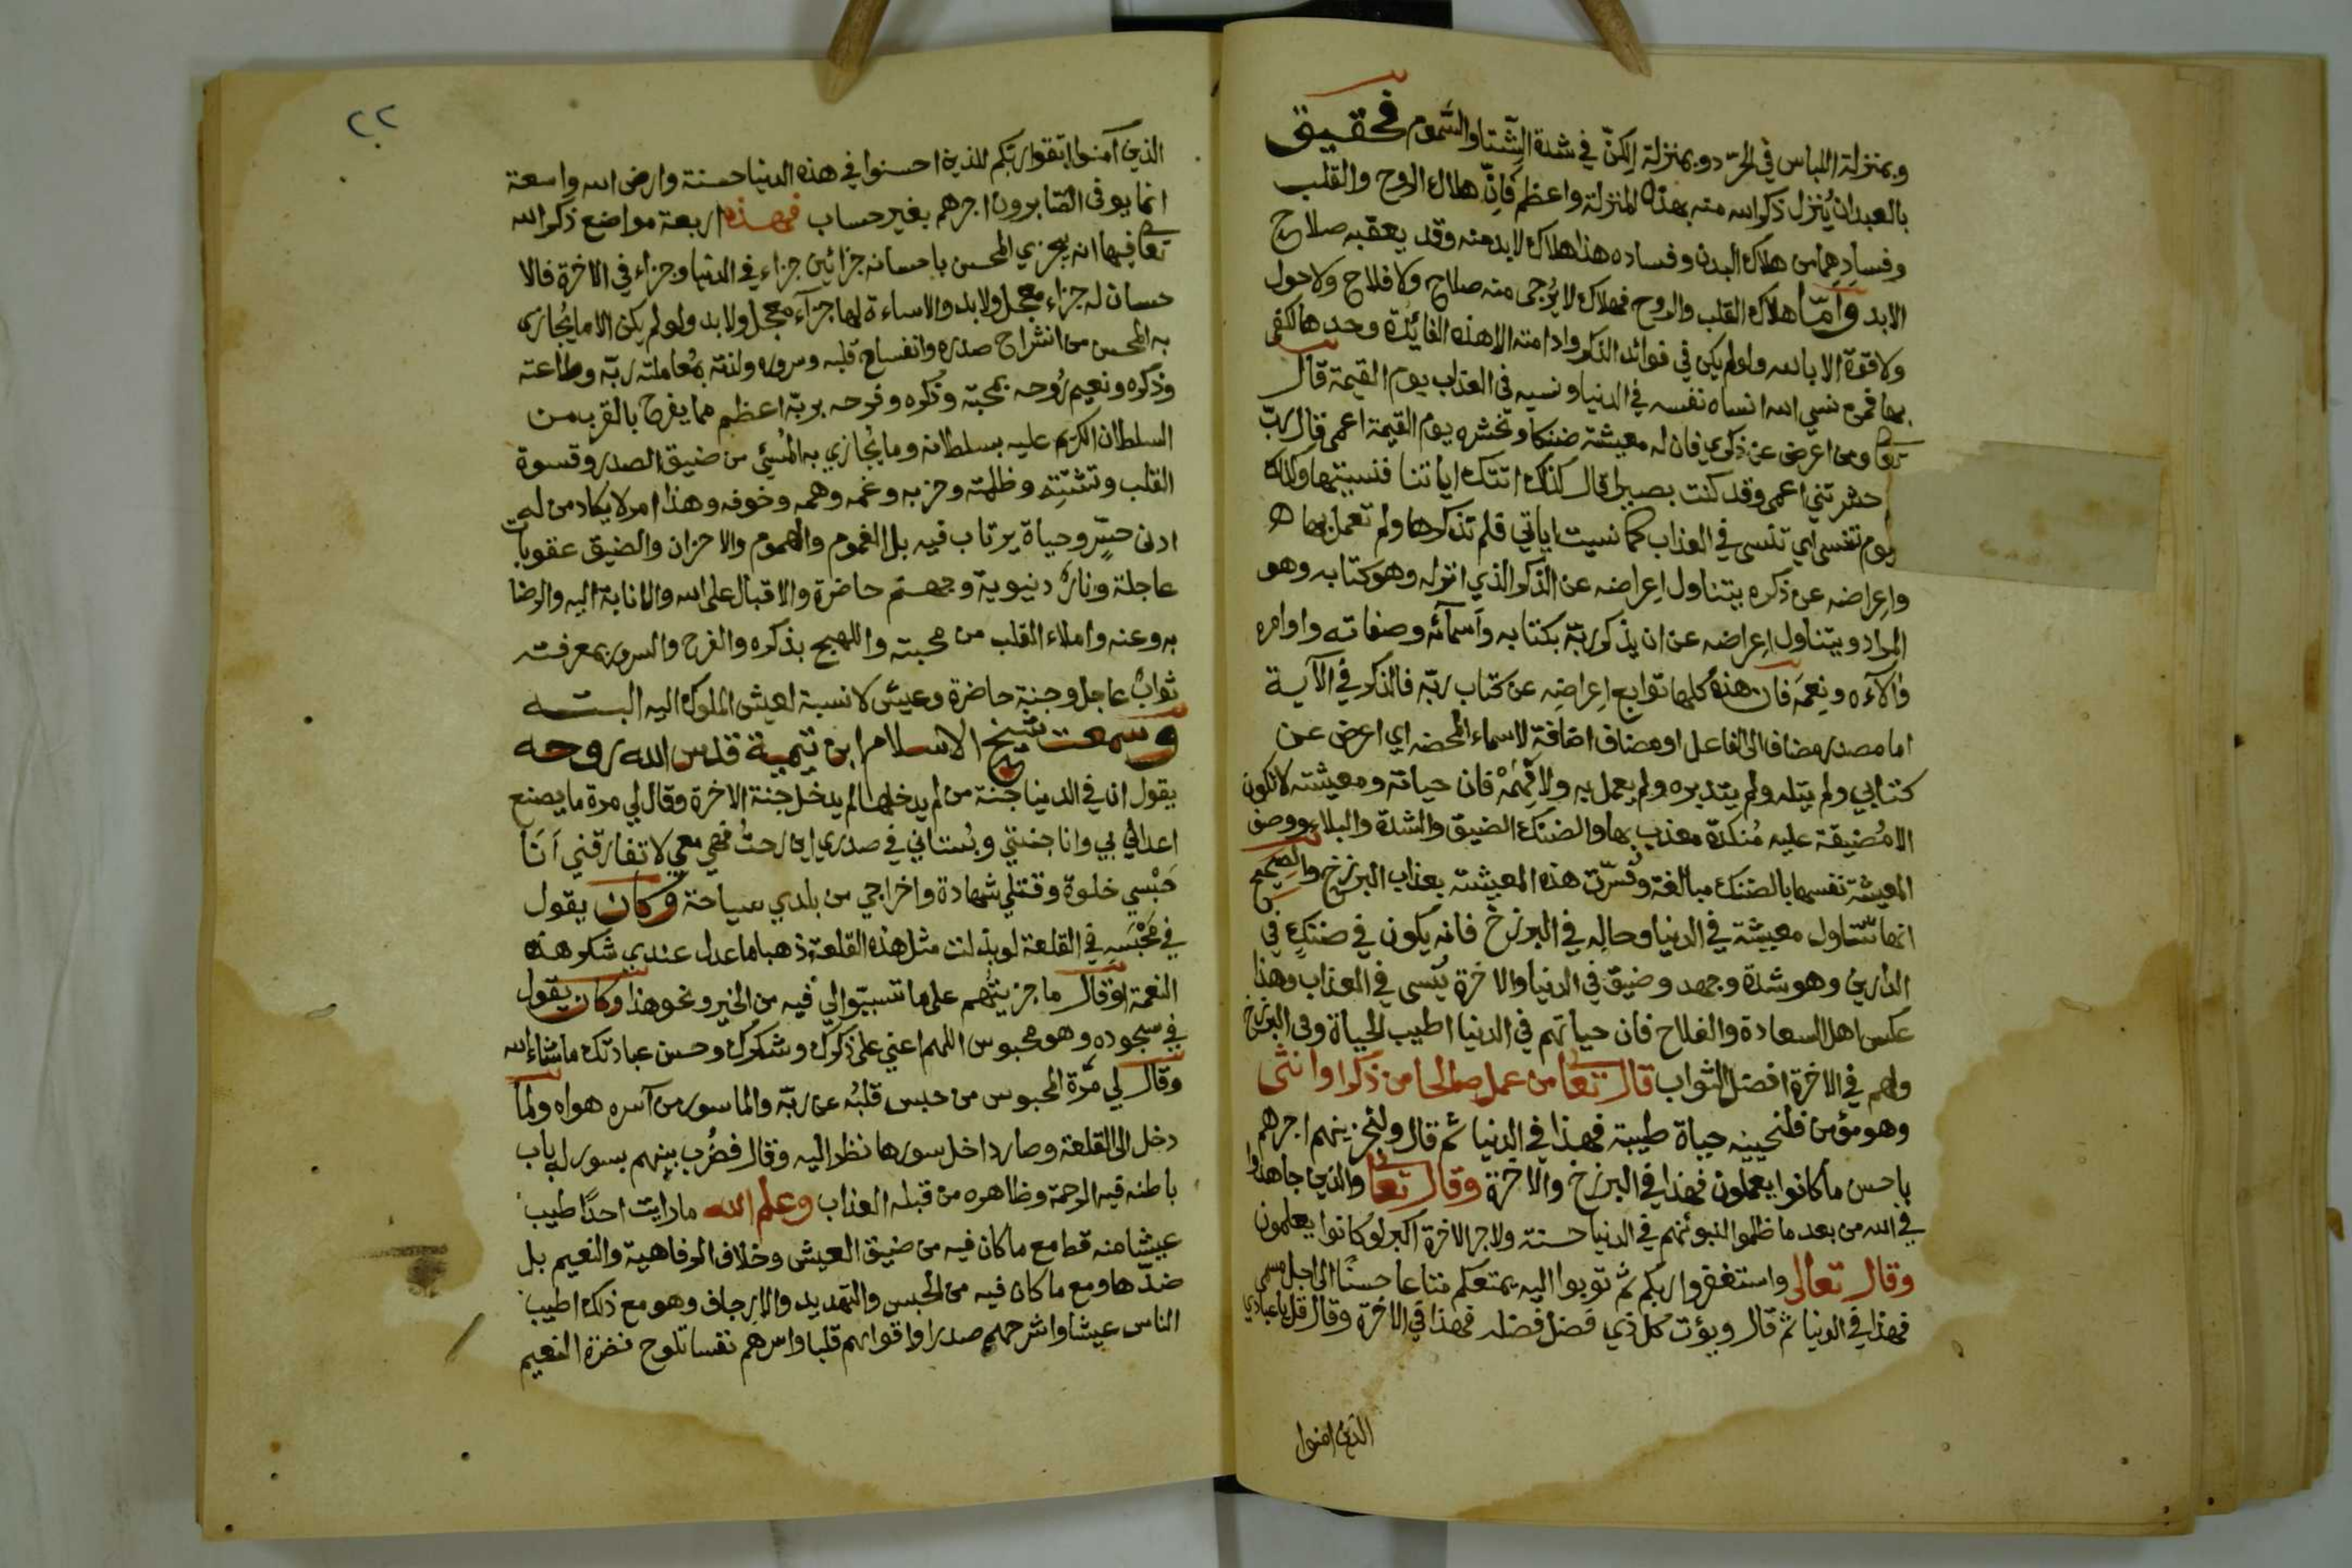 وبمنزلة اللباس في الحرّ دو بمنزلة الكِنّ في شدة الشّتا والسّموم فحقيق
بالعبد ان يُنزل ذكر الله منه بهذه المنزلة واعظم فانّ هلاك الروح والقلب
وفسادِهما من هلاك البدن وفساده هذا هلاك لابد منه وقد يعقبه صلاح
الابد وامّا هلاك القلب والروح فهلاك لا يُرجى منه صلاح ولا فلاح ولا حول
ولا قوّة الا بالله ولو لم يكن في فوائد الذكر وادامته الا هذه الفائدة وحدها لكفى
بها فمن نسي الله انساه نفسه في الدنيا ونسيه في العذاب يوم القيمة قال
تعا ومن اعرض عن ذكري فان له معيشة ضنكا ونحشره يوم القيمة اعمى قال ربّ
حشرتني اعمى وقد كنت بصيرا قال كذلك اتتك اياتنا فنسيتها وكذلك
اليوم تنسى اي تنسى في العذاب كما نسيت اياتي فلم تذكرها ولم تعمل بها
واعراضه عن ذكره يتناول اعراضه عن الذكر الذي انزله وهو كتابه وهو
المراد ويتناول اعراضه عن ان يذكر ربّه بكتابه واسمآئه وصفاته واوامره
وآلآءه ونِعمَه فان هذه كلها توابع اعراضِه عن كتاب ربّه فالذكر في الآية
اما مصدر مضاف الى الفاعل او مضاف اضافة الاسماء المحضه اي اعرض عن
كتابي ولم يتله ولم يتدبره ولم يعمل به ولا فَهِمَهُ فان حياته ومعيشته لا تكون
الا مُضيقة عليه مُنكدّة معذب بها والضنك الضيق والشدة والبلاء ووصف
المعيشة نفسها بالضنك مبالغة وفُسّرت هذه المعيشة بعذاب البرزخ والصحيح
انها تتناول معيشة في الدنيا وحالِه في البرزخ فانه يكون في ضنكٍ في
الدارين وهو شدة وجهد وضيق في الدنيا والاخرة يُنسى في العذاب وهذا
عكس اهل السعادة والفلاح فان حياتهم في الدنيا اطيب الحياة وفي البرزخ
ولهم في الاخرة افضل الثواب قال تعا من عمل صالحا من ذكر او انثى
وهو مؤمن فلنحيينه حياة طيبة فهذا في الدنيا ثم قال ولنجزينهم اجرهم
باحسن ما كانوا يعملون فهذا في البرزخ والاخرة وقال تعا والذين جاهدوا
في الله من بعد ما ظلموا لنبوئنهم في الدنيا حسنة ولاجر الاخرة اكبر لو كانوا يعلمون
وقال تعالى واستغفروا ربكم ثم توبوا اليه يمتعكم متاعا حسنًا الى اجل مسمى
فهذا في الدنيا ثم قال ويؤت كل ذي فضل فضله فهذا في الاخرة وقال قل يا عبادي
الذين امنوا
٢٢
الذين آمنوا اتقوا ربكم للذين احسنوا في هذه الدنيا حسنة وارض الله واسعة
انما يوفى الصّابرون اجرهم بغير حساب فهذه اربعة مواضع ذكر الله
تعا فيها انه يجزي المحسن باحسانه جزائين جزاء في الدنيا وجزاء في الاخرة فالا
حسان له جزاء معجل ولا بد والاساءة لها جزآء معجل ولا بد ولو لم يكن الا ما يُجازى
به المحسن من انشراح صدره وانفساح قلبه وسروره ولذته بمُعاملته ربّه وطاعته
وذكره ونعيم رُوحه بمحبته وذكره وفرحه بربّه اعظم مما يفرح بالقرب من
السلطان الكريم عليه بسلطانه وما يُجازي به المُسئ من ضيق الصدر وقسوة
القلب وتشتته وظلمته وحزبه وغمه وهمه وخوفه وهذا امر لا يكاد من له
ادنى حسّ وحياة يرتاب فيه بل الغموم والهموم والاحزان والضيق عقوبات
عاجلة ونارٌ دنيوية وجهنم حاضرة والاقبال على الله والانابة اليه والرضا
به وعنه واملاء القلب من محبته واللهج بذكره والفرح والسرور بمعرفته
ثوابٌ عاجل وجنة حاضرة وعيش لا نسبة لعيش الملوك اليه البته
وسمعت شيخ الاسلام ابن تيمية قدس الله روحه
يقول ان في الدنيا جنة من لم يدخلها لم يدخل جنة الاخرة وقال لي مرة ما يصنع
اعدائي بي وانا جنتي وبُستاني في صدري اين رحتُ فهي معي لا تفارقني اَنَا
حَبْسي خلوة وقتلي شهادة واخراجي من بلدي سياحة وكان يقول
في مَحْبَسِه في القلعة لو بذلت مثل هذه القلعة ذهبا ما عدل عندي شكر هذه
النعمة او قال ما جزيتهم على ما تسببّوا لي فيه من الخير ونحو هذا وكان يقول
في سجوده وهو محبوس اللهم اعني على ذكرك وشكرك وحسن عبادتك ما شاء الله
وقال لي مرّة المحبوس من حبس قلبُه عن ربّه والماسور من آسره هواه ولما
دخل الى القلعة وصار داخل سورها نظر اليه وقال فضُرب بينهم بسور له باب
باطنه فيه الرحمة وظاهره من قبله العذاب وعلم الله ما رايت احدًا اطيب
عيشا منه قط مع ما كان فيه من ضيق العيش وخلاف الرفاهية والنعيم بل
ضدّها ومع ما كان فيه من الحبس والتهديد والارجاف وهو مع ذلك اطيب
الناس عيشا واشرحهم صدرا واقواهم قلبا واسرهم نفسا تلوح نضرة النعيم